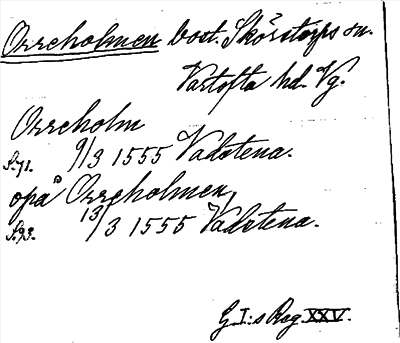 Orreholmen bost. Skörstorps sn.
Vartofta hd. Vg.
Orreholm
S.71. 9/3 1555 Vadstena.
opå Orreholmen,
S.93. 13/3 1555 Vadstena.
G.I:s Reg. XXV.